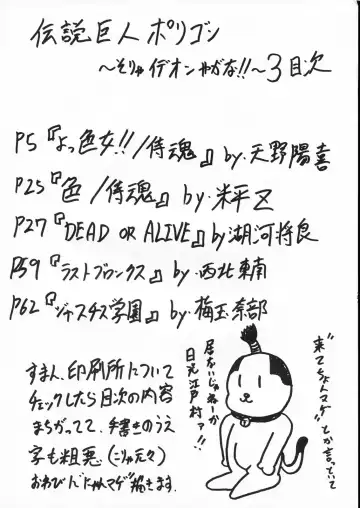 伝説巨人ポリゴン
〜そりゃイデオンやがな!!〜3目次
P5『よっ色女!!/侍魂』by.天野陽喜
P25『色/侍魂』by.米平Z
P27『DEAD OR ALIVE』by湖河将良
P59『ラストブロンクス』by.西北東南
P62『ジャスチス学園』by.梅玉奈部
すまん、印刷所について
チェックしたら目次の内容
まちがってて、手書きのうえ
字も粗悪(こりゃ元々)
おわびにゃんマゲ描きます.
"来てちょんマゲ"とか言っていて
居ないじゃねーか
日光江戸村ァ!!